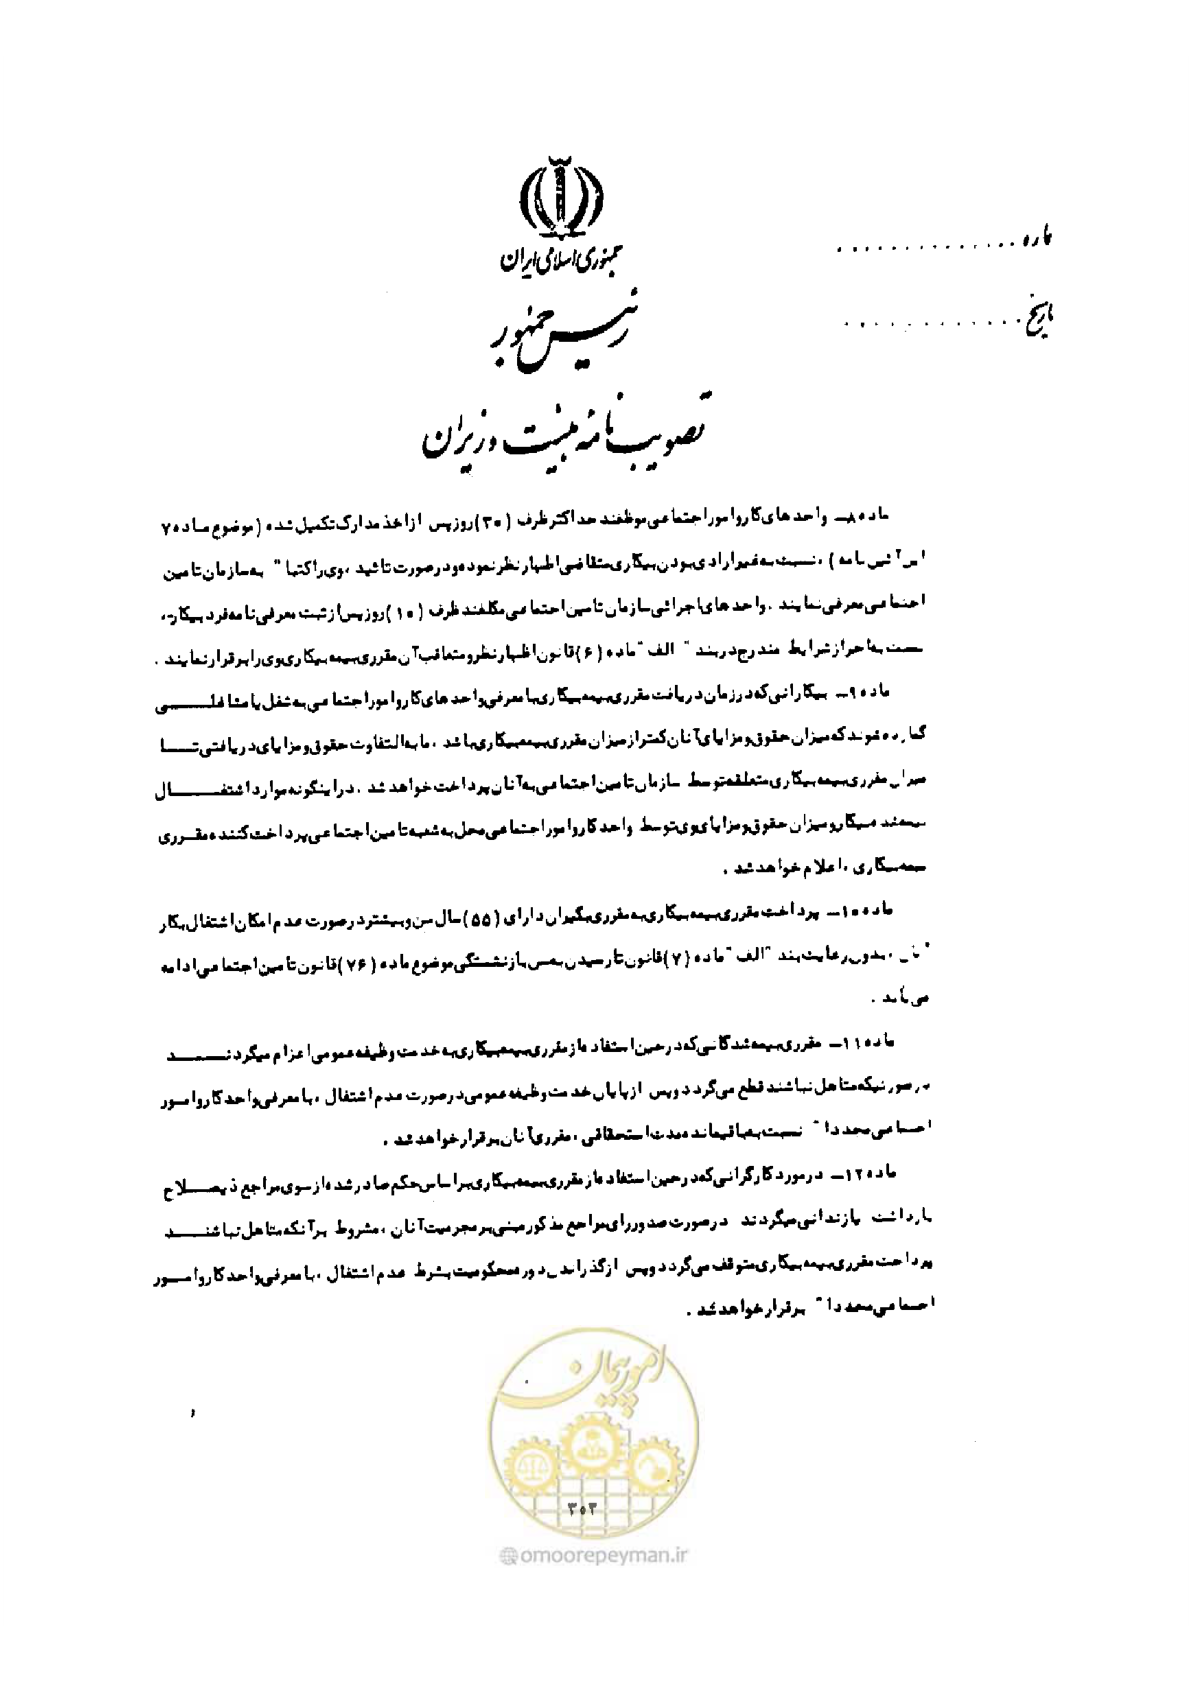 جمهوری اسلامی ایران
رئیس جمهور
تصویب نامه هیئت وزیران
ماره . . . . . . . . . . . . . .
تاریخ . . . . . . . . . . . . . .
ماده ۸ـ واحدهای کار و امور اجتماعی موظفند حداکثر ظرف (۳۰) روز پس از اخذ مدارک تکمیل شده (موضوع ماده ۷
این آئین نامه) ، نسبت به غیر ارادی بودن بیکاری متقاضی اظهار نظر نموده و در صورت تائید ، وی را کتبا" به سازمان تامین
اجتماعی معرفی نمایند . واحدهای اجرائی سازمان تامین اجتماعی مکلفند ظرف (۱۰) روز پس از ثبت معرفی نامه فرد بیکار ،
نسبت به احراز شرایط مندرج در بند " الف " ماده (۶) قانون اظهار نظر و متعاقب آن مقرری بیمه بیکاری وی را برقرار نمایند .
ماده ۹ـ بیکارانی که در زمان دریافت مقرری بیمه بیکاری با معرفی واحدهای کار و امور اجتماعی به شغل یا مشاغلــــی
گمارده شوند که میزان حقوق و مزایای آنان کمتر از میزان مقرری بیمه بیکاری باشد ، مابه التفاوت حقوق و مزایای دریافتی تــــا
میزان مقرری بیمه بیکاری متعلقه توسط سازمان تامین اجتماعی به آنان پرداخت خواهد شد . در اینگونه موارد اشتغـــــال
بیمه شده بیکار و میزان حقوق و مزایای وی توسط واحد کار و امور اجتماعی محل به شعبه تامین اجتماعی پرداخت کننده مقرری
بیمه بیکاری ، اعلام خواهد شد .
ماده ۱۰ـ پرداخت مقرری بیمه بیکاری به مقرری بگیران دارای (۵۵) سال سن و بیشتر در صورت عدم امکان اشتغال بکار
آنان ، بدون رعایت بند " الف " ماده (۷) قانون تا رسیدن به سن بازنشستگی موضوع ماده (۷۶) قانون تامین اجتماعی ادامه
می یابد .
ماده ۱۱ـ مقرری بیمه شدگانی که در حین استفاده از مقرری بیمه بیکاری به خدمت وظیفه عمومی اعزام میگردنـــــد
در صورتیکه متاهل نباشند قطع می گردد و پس از پایان خدمت وظیفه عمومی در صورت عدم اشتغال ، با معرفی واحد کار و امــور
اجتماعی مجددا" نسبت به باقیمانده مدت استحقاقی ، مقرری آنان برقرار خواهد شد .
ماده ۱۲ـ در مورد کارگرانی که در حین استفاده از مقرری بیمه بیکاری براساس حکم صادر شده از سوی مراجع ذیصـــلاح
بازداشت یا زندانی میگردند در صورت صدور رای مراجع مذکور مبنی بر مجرمیت آنان ، مشروط بر آنکه متاهل نباشنـــــد
پرداخت مقرری بیمه بیکاری متوقف می گردد و پس از گذراندن دوره محکومیت بشرط عدم اشتغال ، با معرفی واحد کار و امــور
اجتماعی مجددا" برقرار خواهد شد .
امور پیمان
۳۰۳
@omoorepeyman.ir